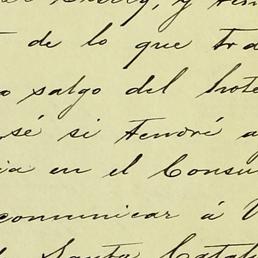 de lo que tra
o salgo del hote
sé si tendré a
ia en el Consu
comunicar á V
Santa Catal